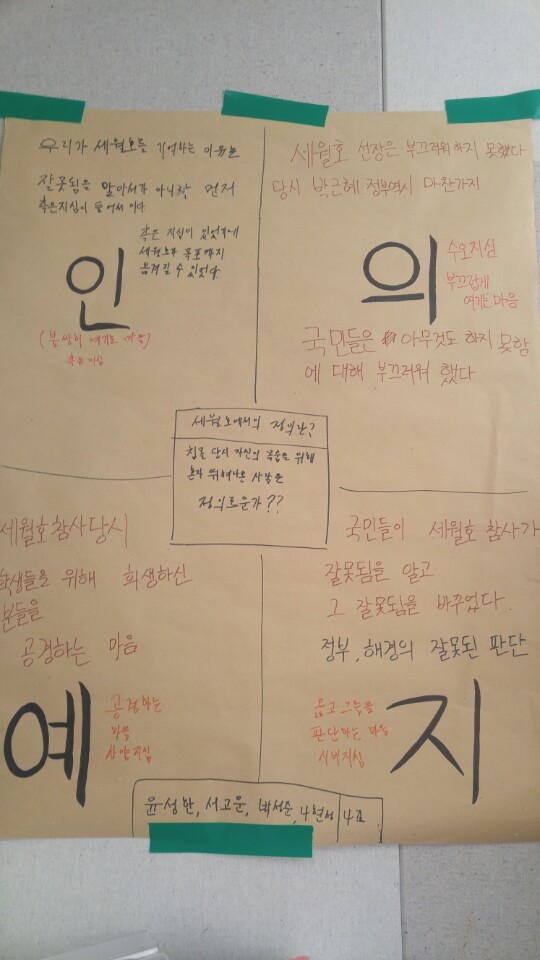 우리가 세월호를 기억하는 이유는
잘못됨을 알아서가 아니라 먼저
측은지심이 들어서 이다
측은 지심이 있었기에
세월호가 목포까지
옮겨질 수 있었다.
인
(불쌍히 여기는 마음)
측은지심
세월호 선장은 부끄러워 하지 못했다
당시 박근혜 정부역시 마찬가지
의
수오지심
부끄럽게
여기는 마음
국민들은 아무것도 하지 못함
에 대해 부끄러워 했다
세월호에서의 정의란?
침몰 당시 자신의 목숨을 위해
혼자 뛰쳐나온 사람은
정의로운가??
세월호 참사 당시
학생들을 위해 희생하신
분들을
공경하는 마음
예
공경하는
마음
사양지심
국민들이 세월호 참사가
잘못됨을 알고
그 잘못됨을 바꾸었다.
정부, 해경의 잘못된 판단
지
옳고 그름을
판단하는 마음
시비지심
윤성환, 서고운, 박서준, 나현서 4조